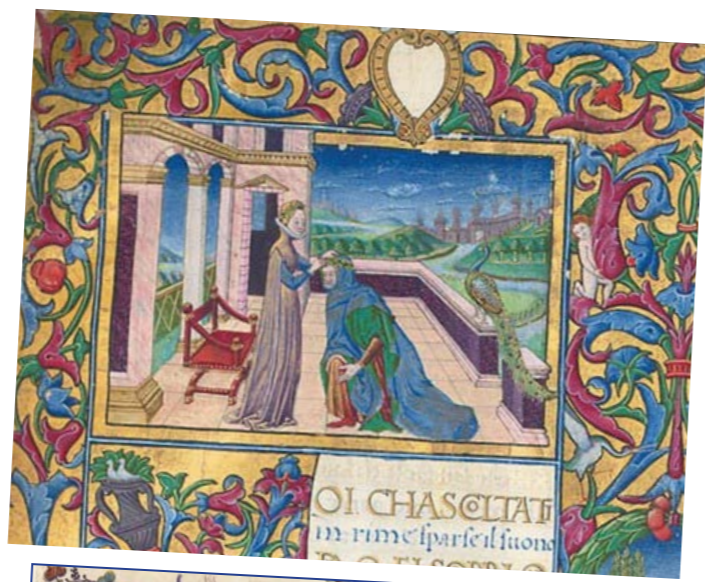 OI CHASCOLTATI
in rime sparse il suono